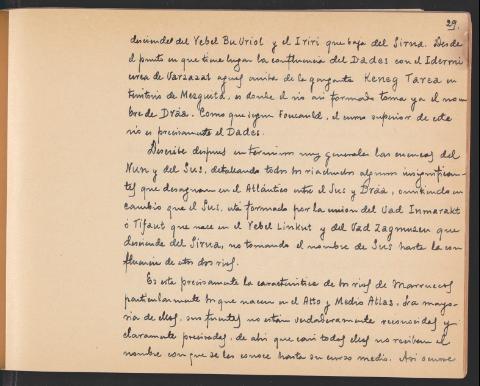 29.
desciende del Yebel Bu Uriol y el Iriri que baja del Sirua. Desde
el punto en que tiene lugar la confluencia del Dades con el Idermi
cerca de Varzazat aguas arriba de la garganta Keneg Tarea en
territorio de Mezguita, es donde el río así formado toma ya el nom-
bre de Dráa. Como que según Foucauld, el curso superior de este
río es precisamente el Dades.
Describe después en términos muy generales las cuencas del
Nun y del Sus, detallando todos los riachuelos algunos insignifican-
tes que desaguan en el Atlántico entre el Sus y Dráa, omitiendo en
cambio que el Sus, está formado por la unión del Uad Inmarakt
ó Tifnut que nace en el Yebel Linkut y del Uad Zagmuzen que
desciende del Sirua, no tomando el nombre de Sus hasta la con-
fluencia de estos dos ríos.
Es esta precisamente la característica de los ríos de Marruecos
particularmente los que nacen en el Alto y Medio Atlas. La mayo-
ría de ellos, sus fuentes no están verdaderamente reconocidas y
claramente precisadas, de ahí que casi todos ellos no reciben el
nombre con que se les conoce hasta su curso medio. Así ocurre